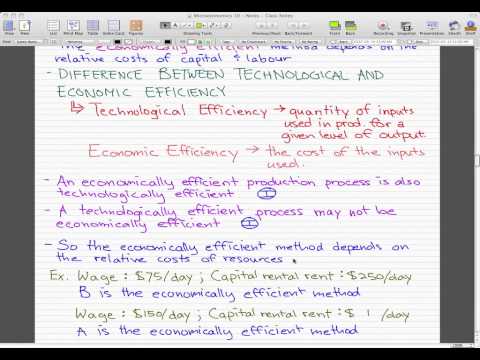 Microeconomics 10 - Notes - Class Notes
The economically efficient method depends on the
relative costs of capital & labour
- DIFFERENCE BETWEEN TECHNOLOGICAL AND
ECONOMIC EFFICIENCY
Technological Efficiency → quantity of inputs
used in prod. for a
given level of output.
Economic Efficiency → the cost of the inputs
used.
- An economically efficient production process is also
technologically efficient I
- A technologically efficient process may not be
economically efficient I
- So the economically efficient method depends on
the relative costs of resources
Ex. Wage : $75/day ; Capital rental rent : $250/day
B is the economically efficient method
Wage : $150/day ; Capital rental rent : $ 1 /day
A is the economically efficient method